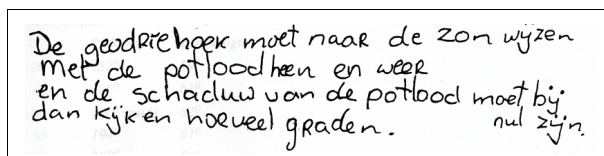 De geodRiehoek moet naar de zon wijzen
met de potlood heen en weer
en de schaduw van de potlood moet bij
dan kijken hoeveel graden. nul zijn.